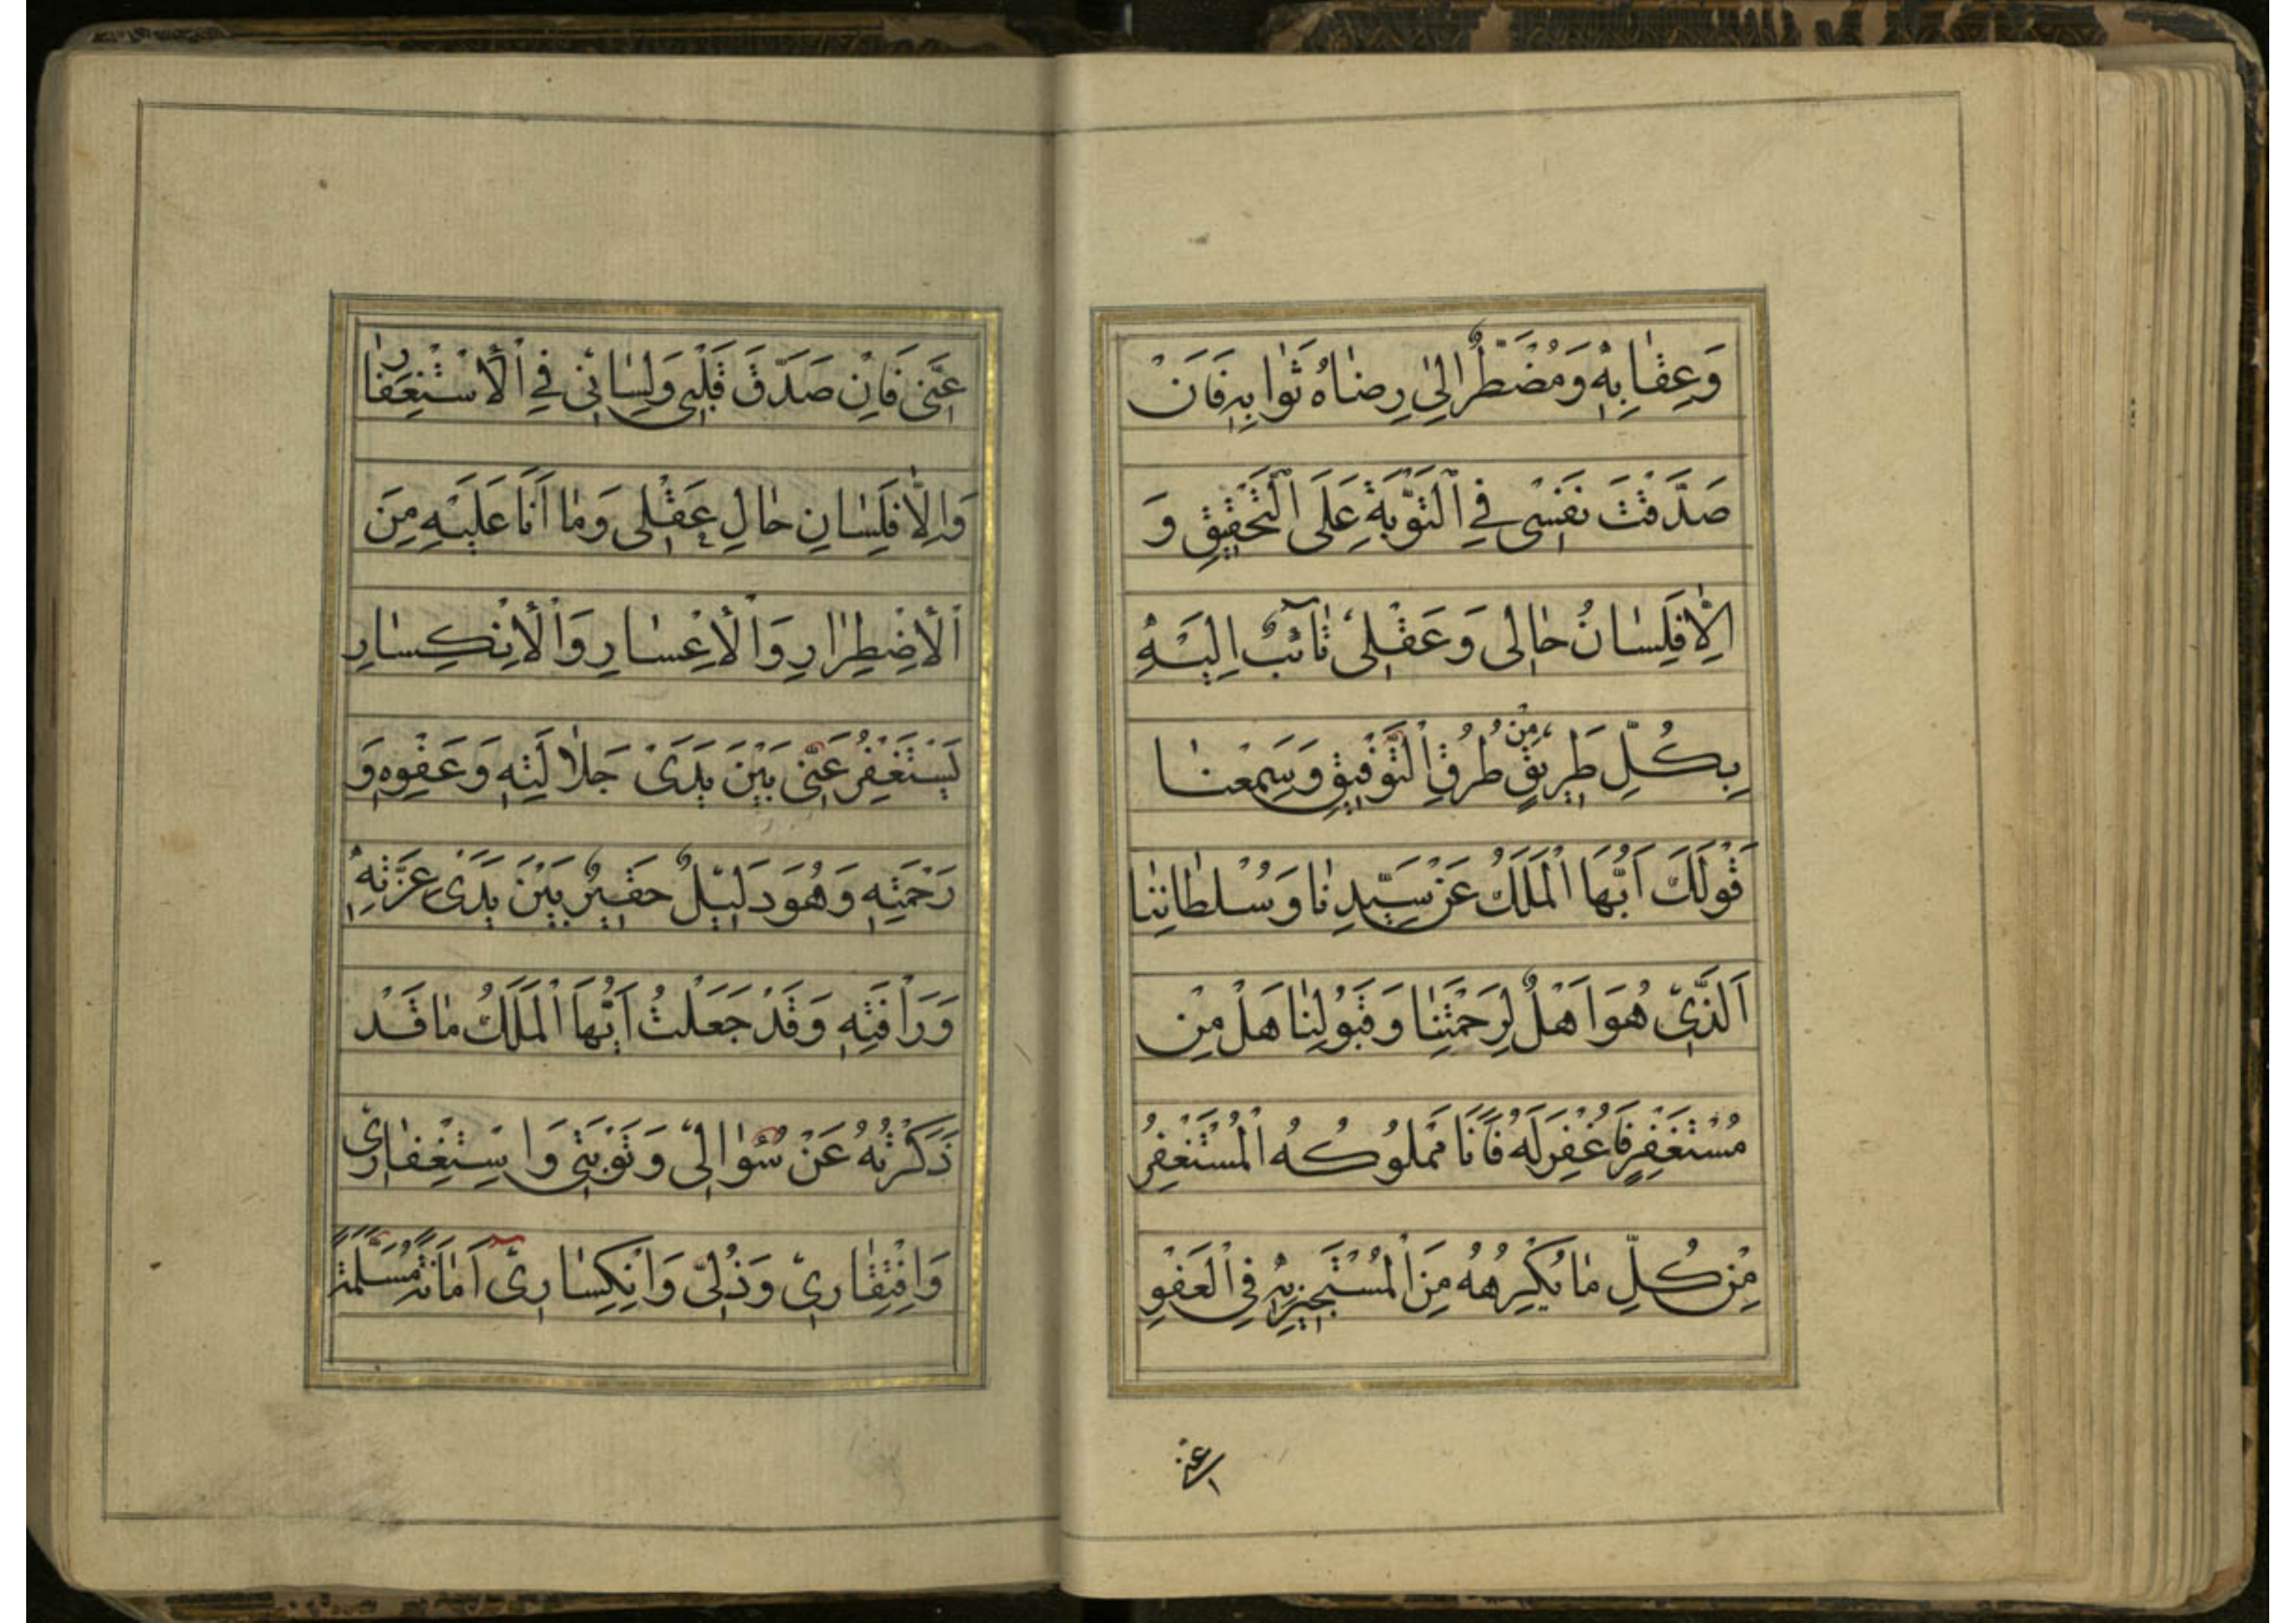 وَعِقٰابِهٖ وَمُضْطَرٌّ اِلىٰ رِضٰاهُ ثَوٰابِهٖ فَاَنْ
صَدَّقْتَ نَفَسْى فِي اَلتَّوْبَةِ عَلَى اَلتَّحْقٖيقِ وَ
اِلّٰا فَلِسٰانُ حٰالِى وَعَقْلٖى تٰائِبٌ اِلَيْهِ
بِكُلِّ طَرٖيقٍ مِنْ طُرُقِ اَلتَّوْفٖيقِ وَسَمِعْنٰا
قَوْلَكَ اَيُّهَا اَلْمَلَكُ عَنْ سَيِّدِنٰا وَسُلطٰانِنٰا
اَلَّذٖي هُوَ اَهْلٌ لِرَحْمَتِنٰا وَقَبُولِنٰا هَلْ مِنْ
مُسْتَغْفِرٍ فَاُغْفِرَ لَهُ فَاَنَا مَمْلوُكُهُ اَلْمُسْتَغْفِرُ
مِنْ كُلِّ مٰا يَكْرِهُهُ مِنَ اَلْمُسْتَجٖيزِ بِهٖ فِي اَلْعَفْوِ
عَنّٖى
عَنّٖى فَاِنْ صَدَّقَ قَلْبٖى وَلِسٰانٖى فِي اَلْأِسْتِغْفٰارِ
وَاِلّٰا فَلِسٰانِ حٰالِ عَقْلٖى وَمٰا اَنَا عَلَيْهِ مِنَ
اَلْأِضْطِرٰارِ وَاَلْأِعْسٰارِ وَاَلْأِنْكِسٰارِ
يَسْتَغْفِرُ عَنّٖى بَيْنَ يَدَىْ جَلٰالَتِهٖ وَعَفْوِهٖ وَ
رَحْمَتِهٖ وَهُوَ دَلٖيلٌ حَقٖيرٌ بَيْنَ يَدَىْ عِزَّتِهٖ
وَرَاْفَتِهٖ وَقَدْ جَعَلْتُ اَيُّهَا اَلْمَلَكُ مٰا قَدْ
ذَكَرْتُهُ عَنْ سُؤٰالٖى وَتَوْبَتٖى وَاسِتِغْفٰارٖى
وَافْتِقٰارٖي وَذُلّٖى وَانْكِسٰارٖى اَمٰانَةً مُسَلَّمَةً